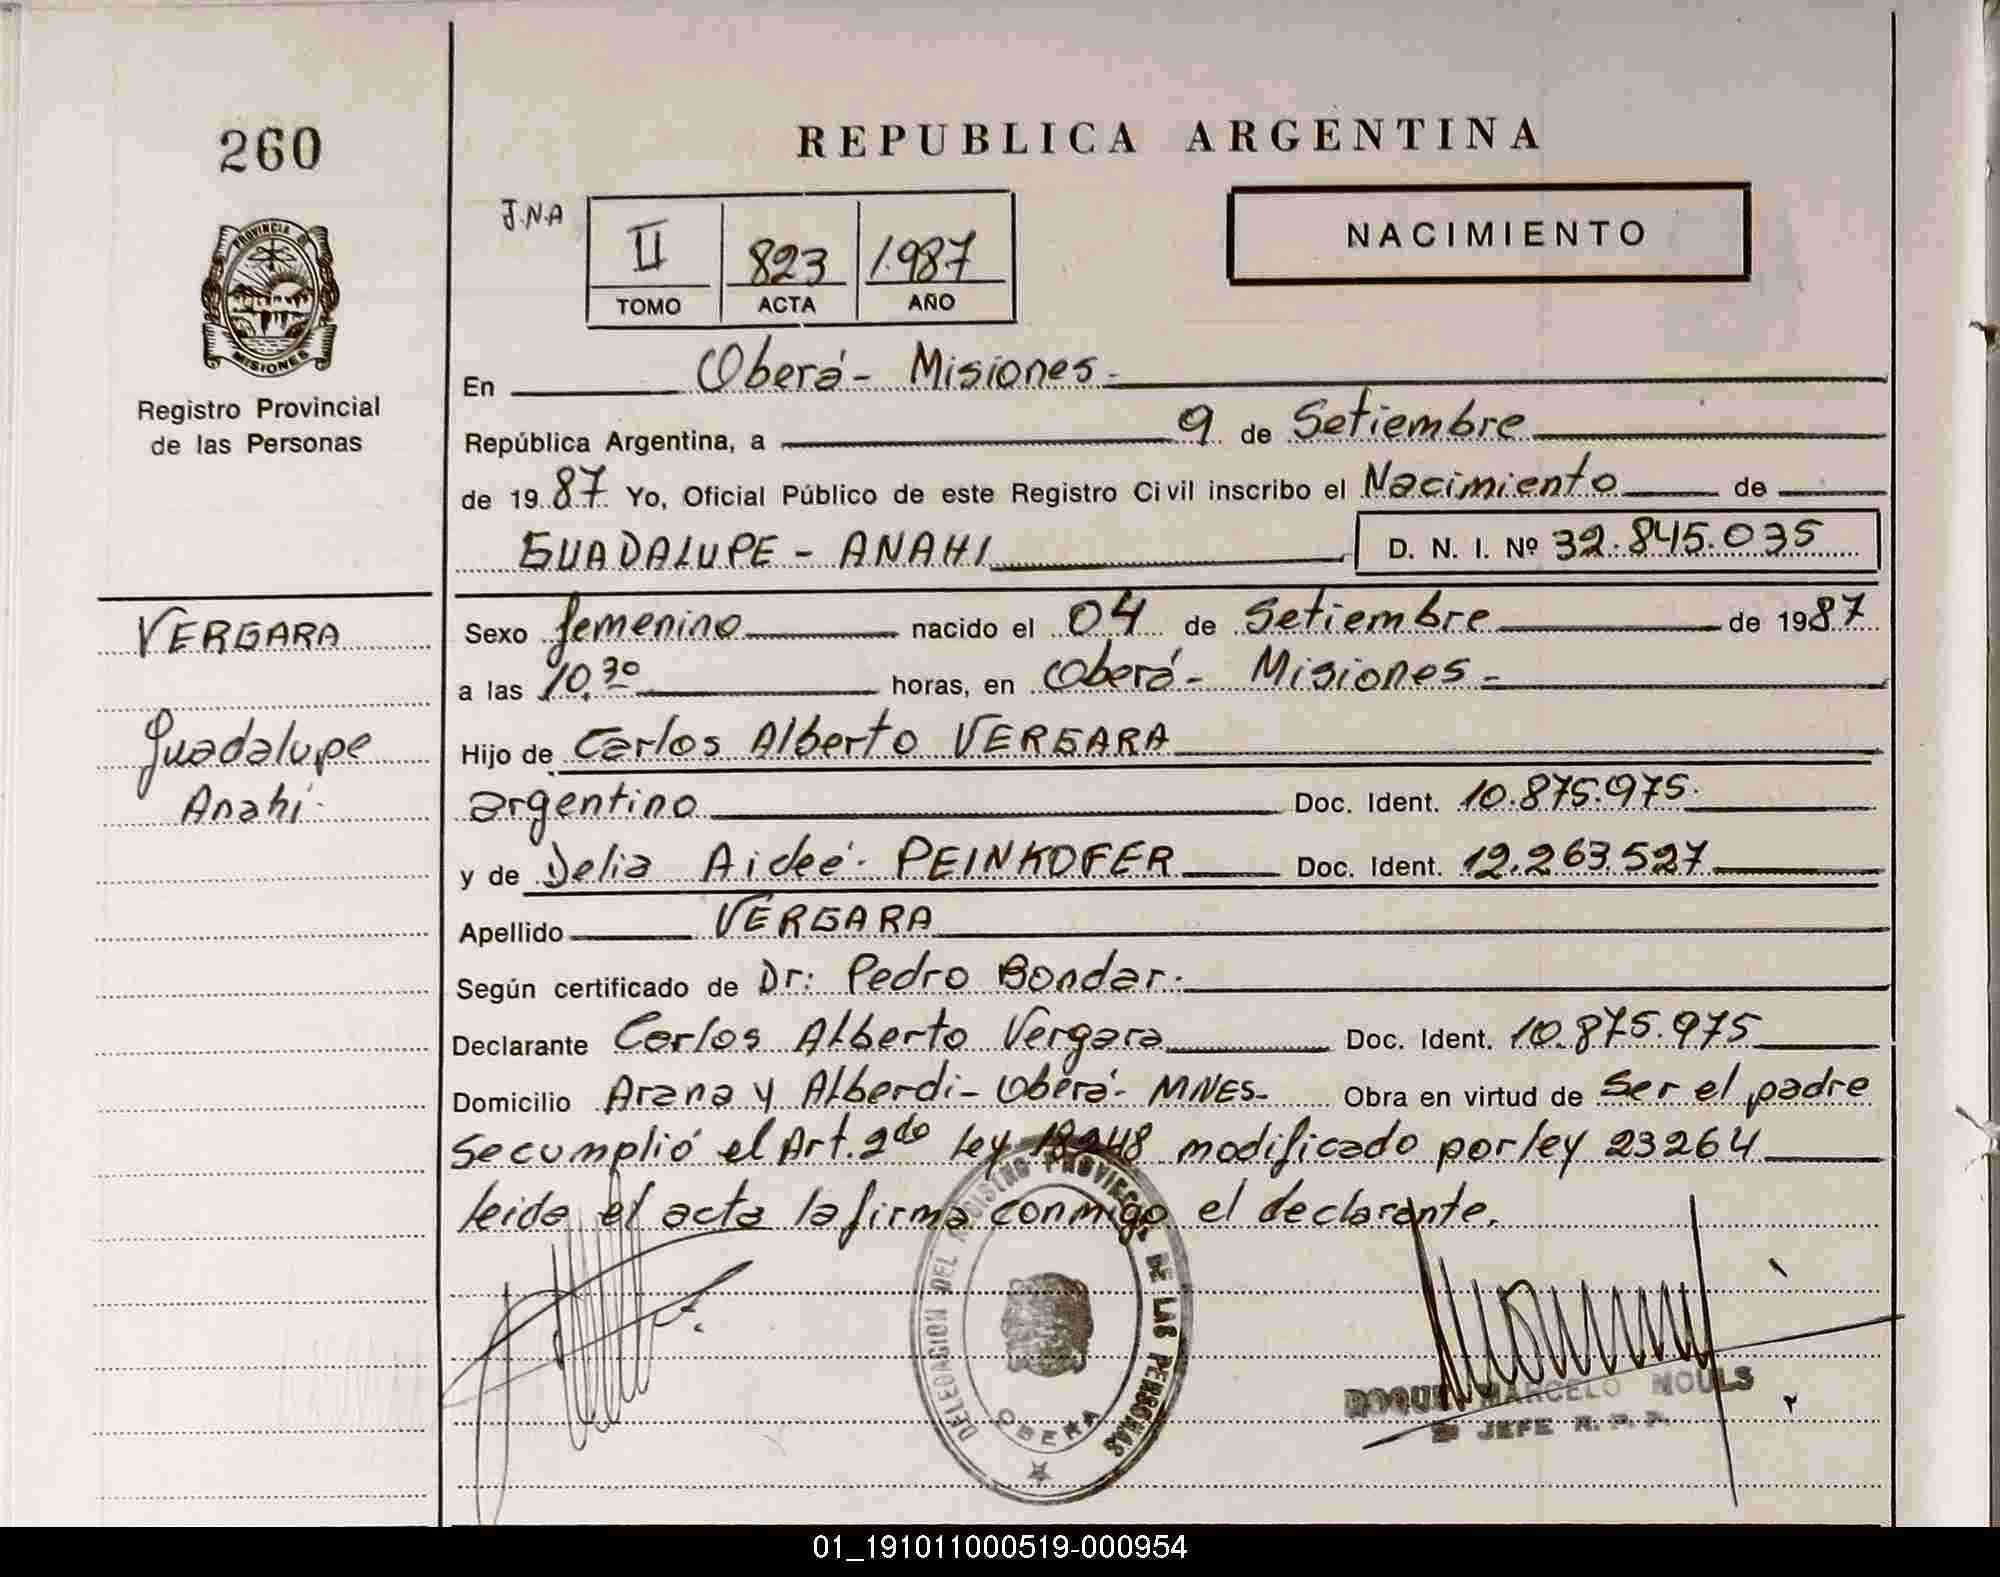 260
REPUBLICA ARGENTINA
J.N.A
II 823 1.987
TOMO ACTA AÑO
NACIMIENTO
PROVINCIA DE
MISIONES
Registro Provincial
de las Personas
En Oberá - Misiones -
República Argentina, a 9 de Setiembre
de 19 87 Yo, Oficial Público de este Registro Civil inscribo el Nacimiento de
GUADALUPE - ANAHI D. N. I. Nº 32.845.035
VERGARA
Guadalupe
Anahí.
Sexo femenino nacido el 04 de Setiembre de 1987
a las 10,30 horas, en Oberá - Misiones -
Hijo de Carlos Alberto VERGARA
argentino Doc. Ident. 10.875.975.
y de Delia Aideé - PEINKOFER Doc. Ident. 12.263.527
Apellido VERGARA
Según certificado de Dr: Pedro Bondar.
Declarante Carlos Alberto Vergara Doc. Ident. 10.875.975
Domicilio Arana y Alberdi - Oberá - MNES - Obra en virtud de Ser el padre
Se cumplió el Art. 2do Ley 18248 modificado por ley 23264
leida el acta la firma conmigo el declarante.
DELEGACION DEL REGISTRO PROVINCIAL DE LAS PERSONAS
OBERA
ROQUE MARCELO MOULS
JEFE R. P. P.
01_191011000519-000954